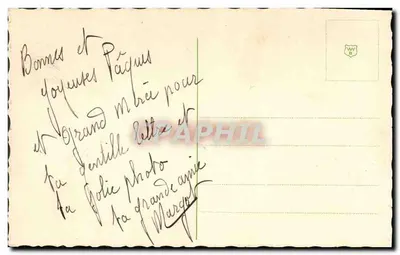 Bonnes et
Joyeuses Pâques
et Grand Merci pour
ta Gentille lettre et
ta Jolie photo
ta grande amie
Margot
NPAPHIL.COM